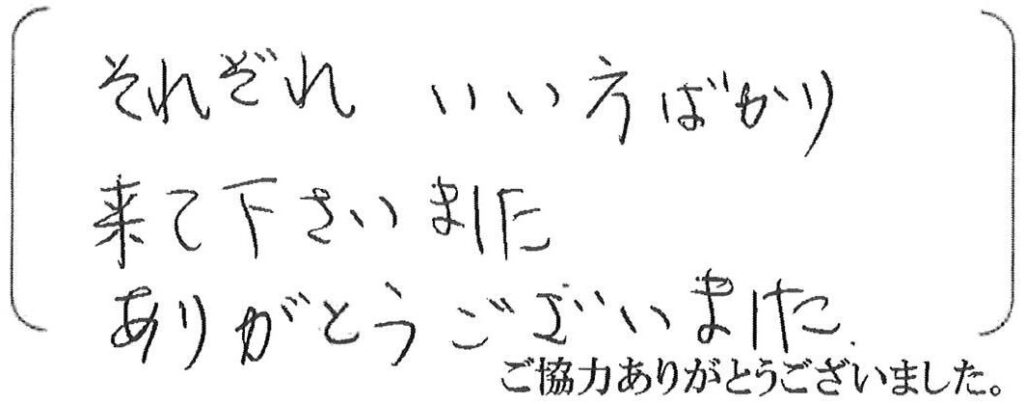 それぞれ いい方ばかり
来て下さいました
ありがとうございました.
ご協力ありがとうございました。